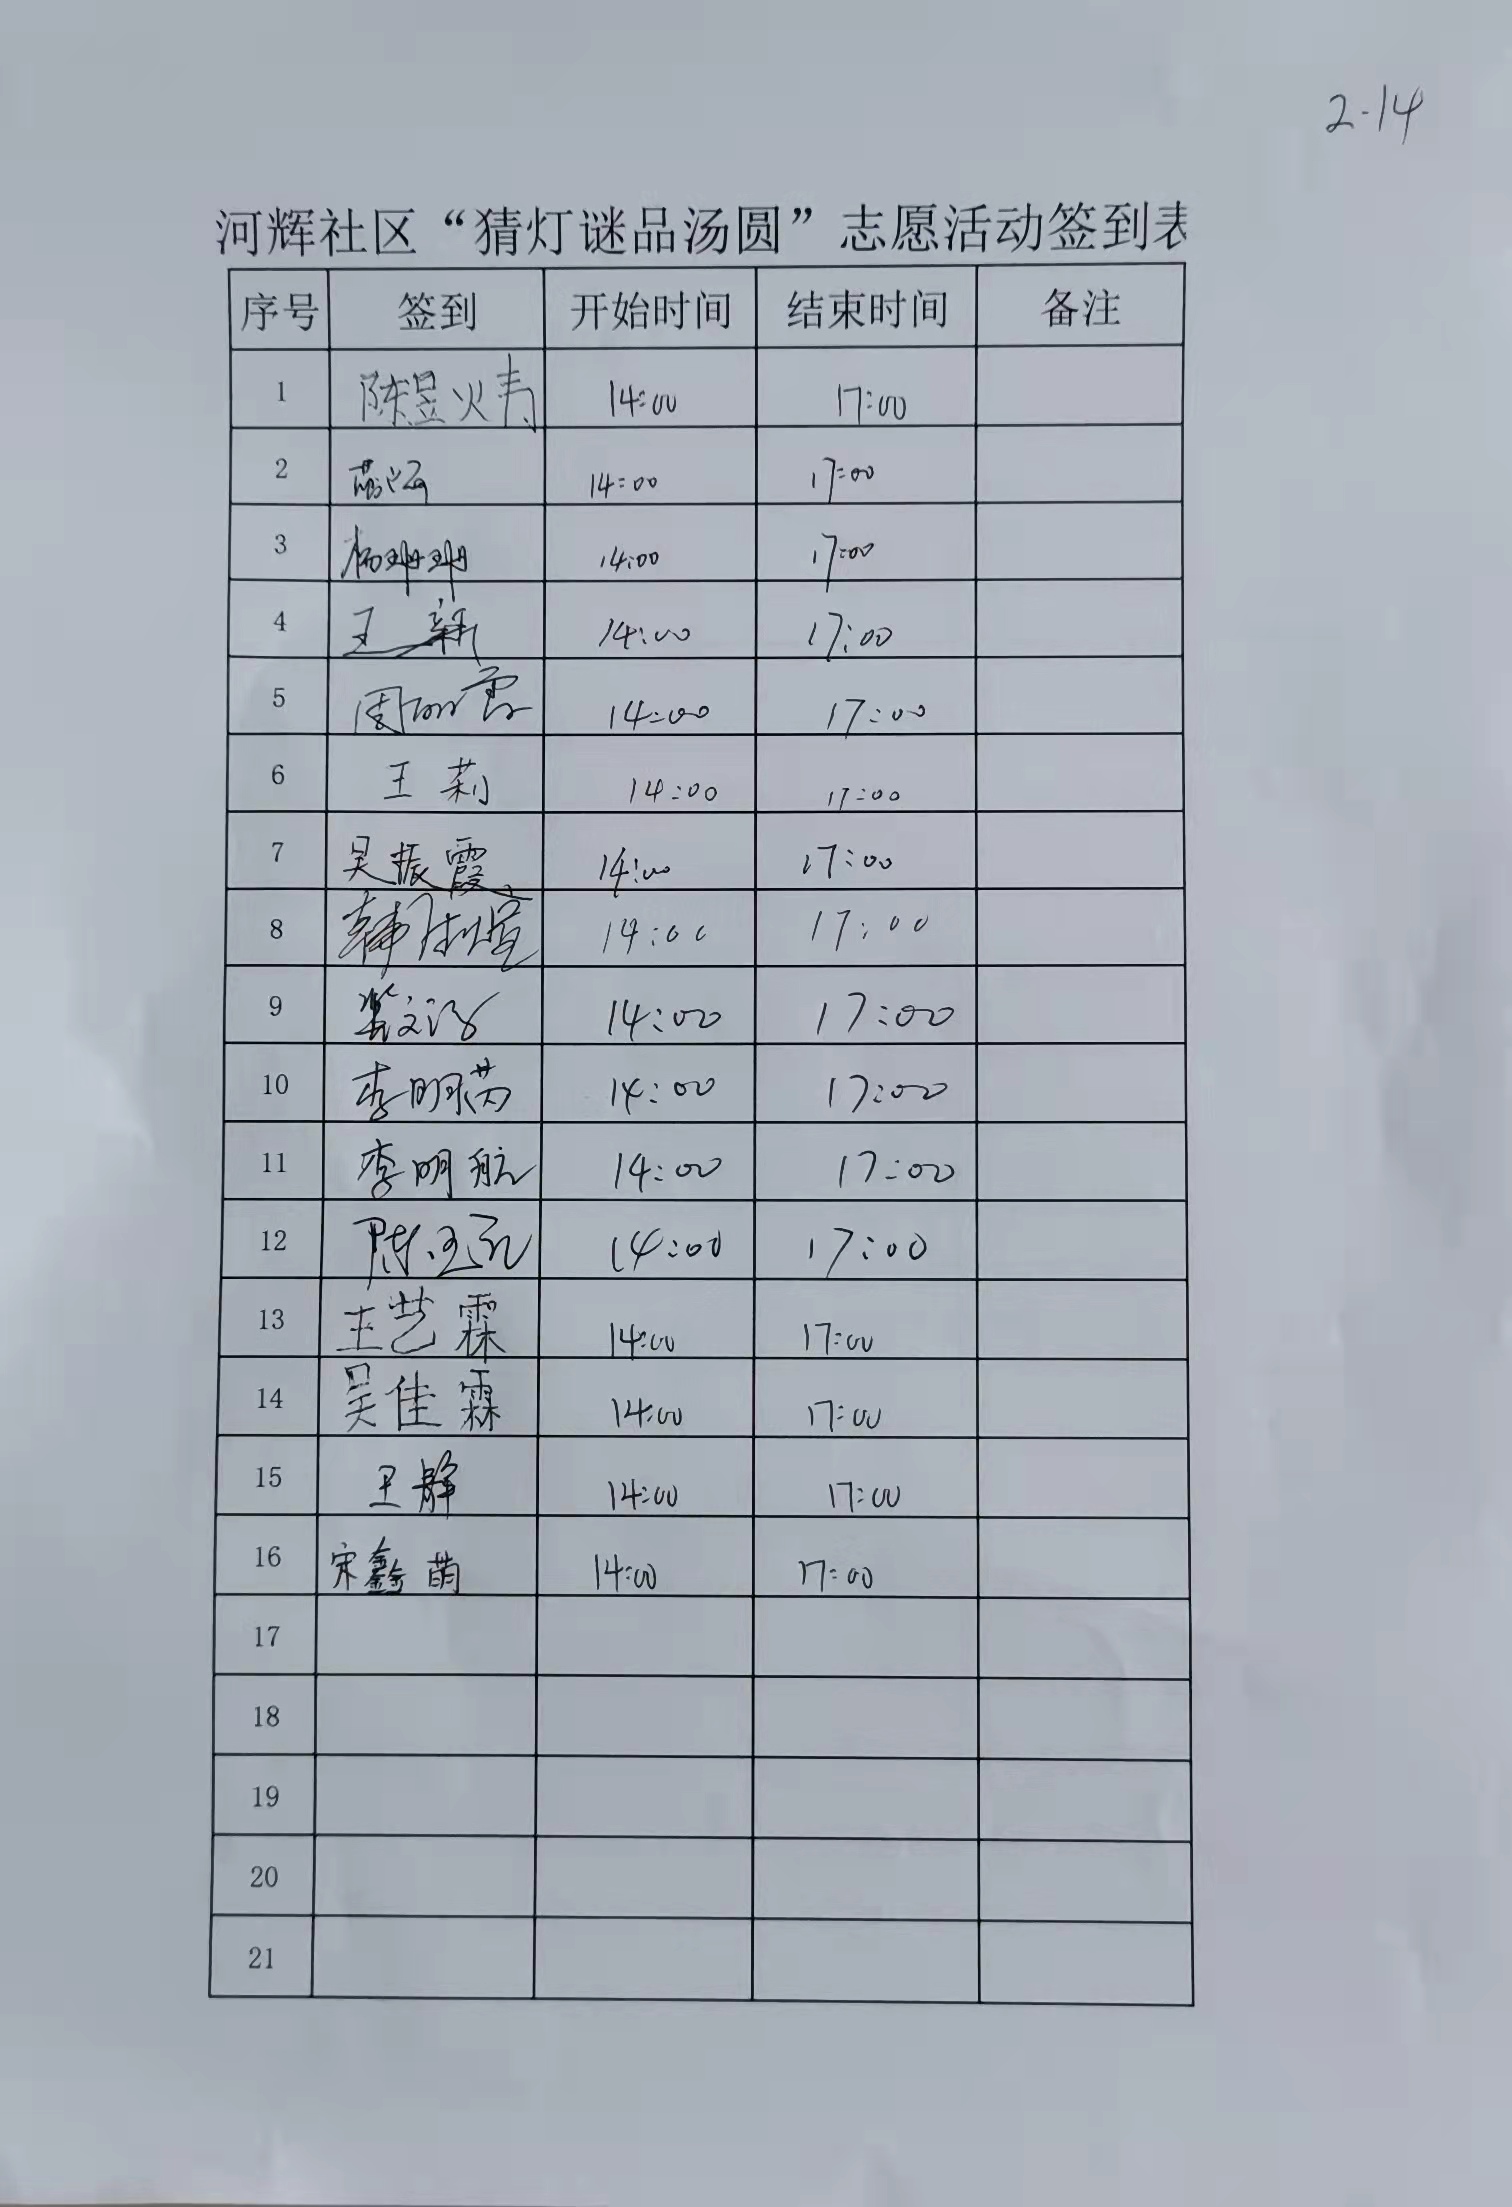 2-14
河辉社区“猜灯谜品汤圆”志愿活动签到表
序号 签到 开始时间 结束时间 备注
1 陈昱火青 14:00 17:00
2 14:00 17:00
3 杨珊珊 14:00 17:00
4 王新 14:00 17:00
5 周丽霞 14:00 17:00
6 王莉 14:00 17:00
7 吴振霞 14:00 17:00
8 韩 14:00 17:00
9 14:00 17:00
10 李明芮 14:00 17:00
11 李明航 14:00 17:00
12 陈 14:00 17:00
13 王艺霖 14:00 17:00
14 吴佳霖 14:00 17:00
15 王静 14:00 17:00
16 宋鑫萌 14:00 17:00
17
18
19
20
21